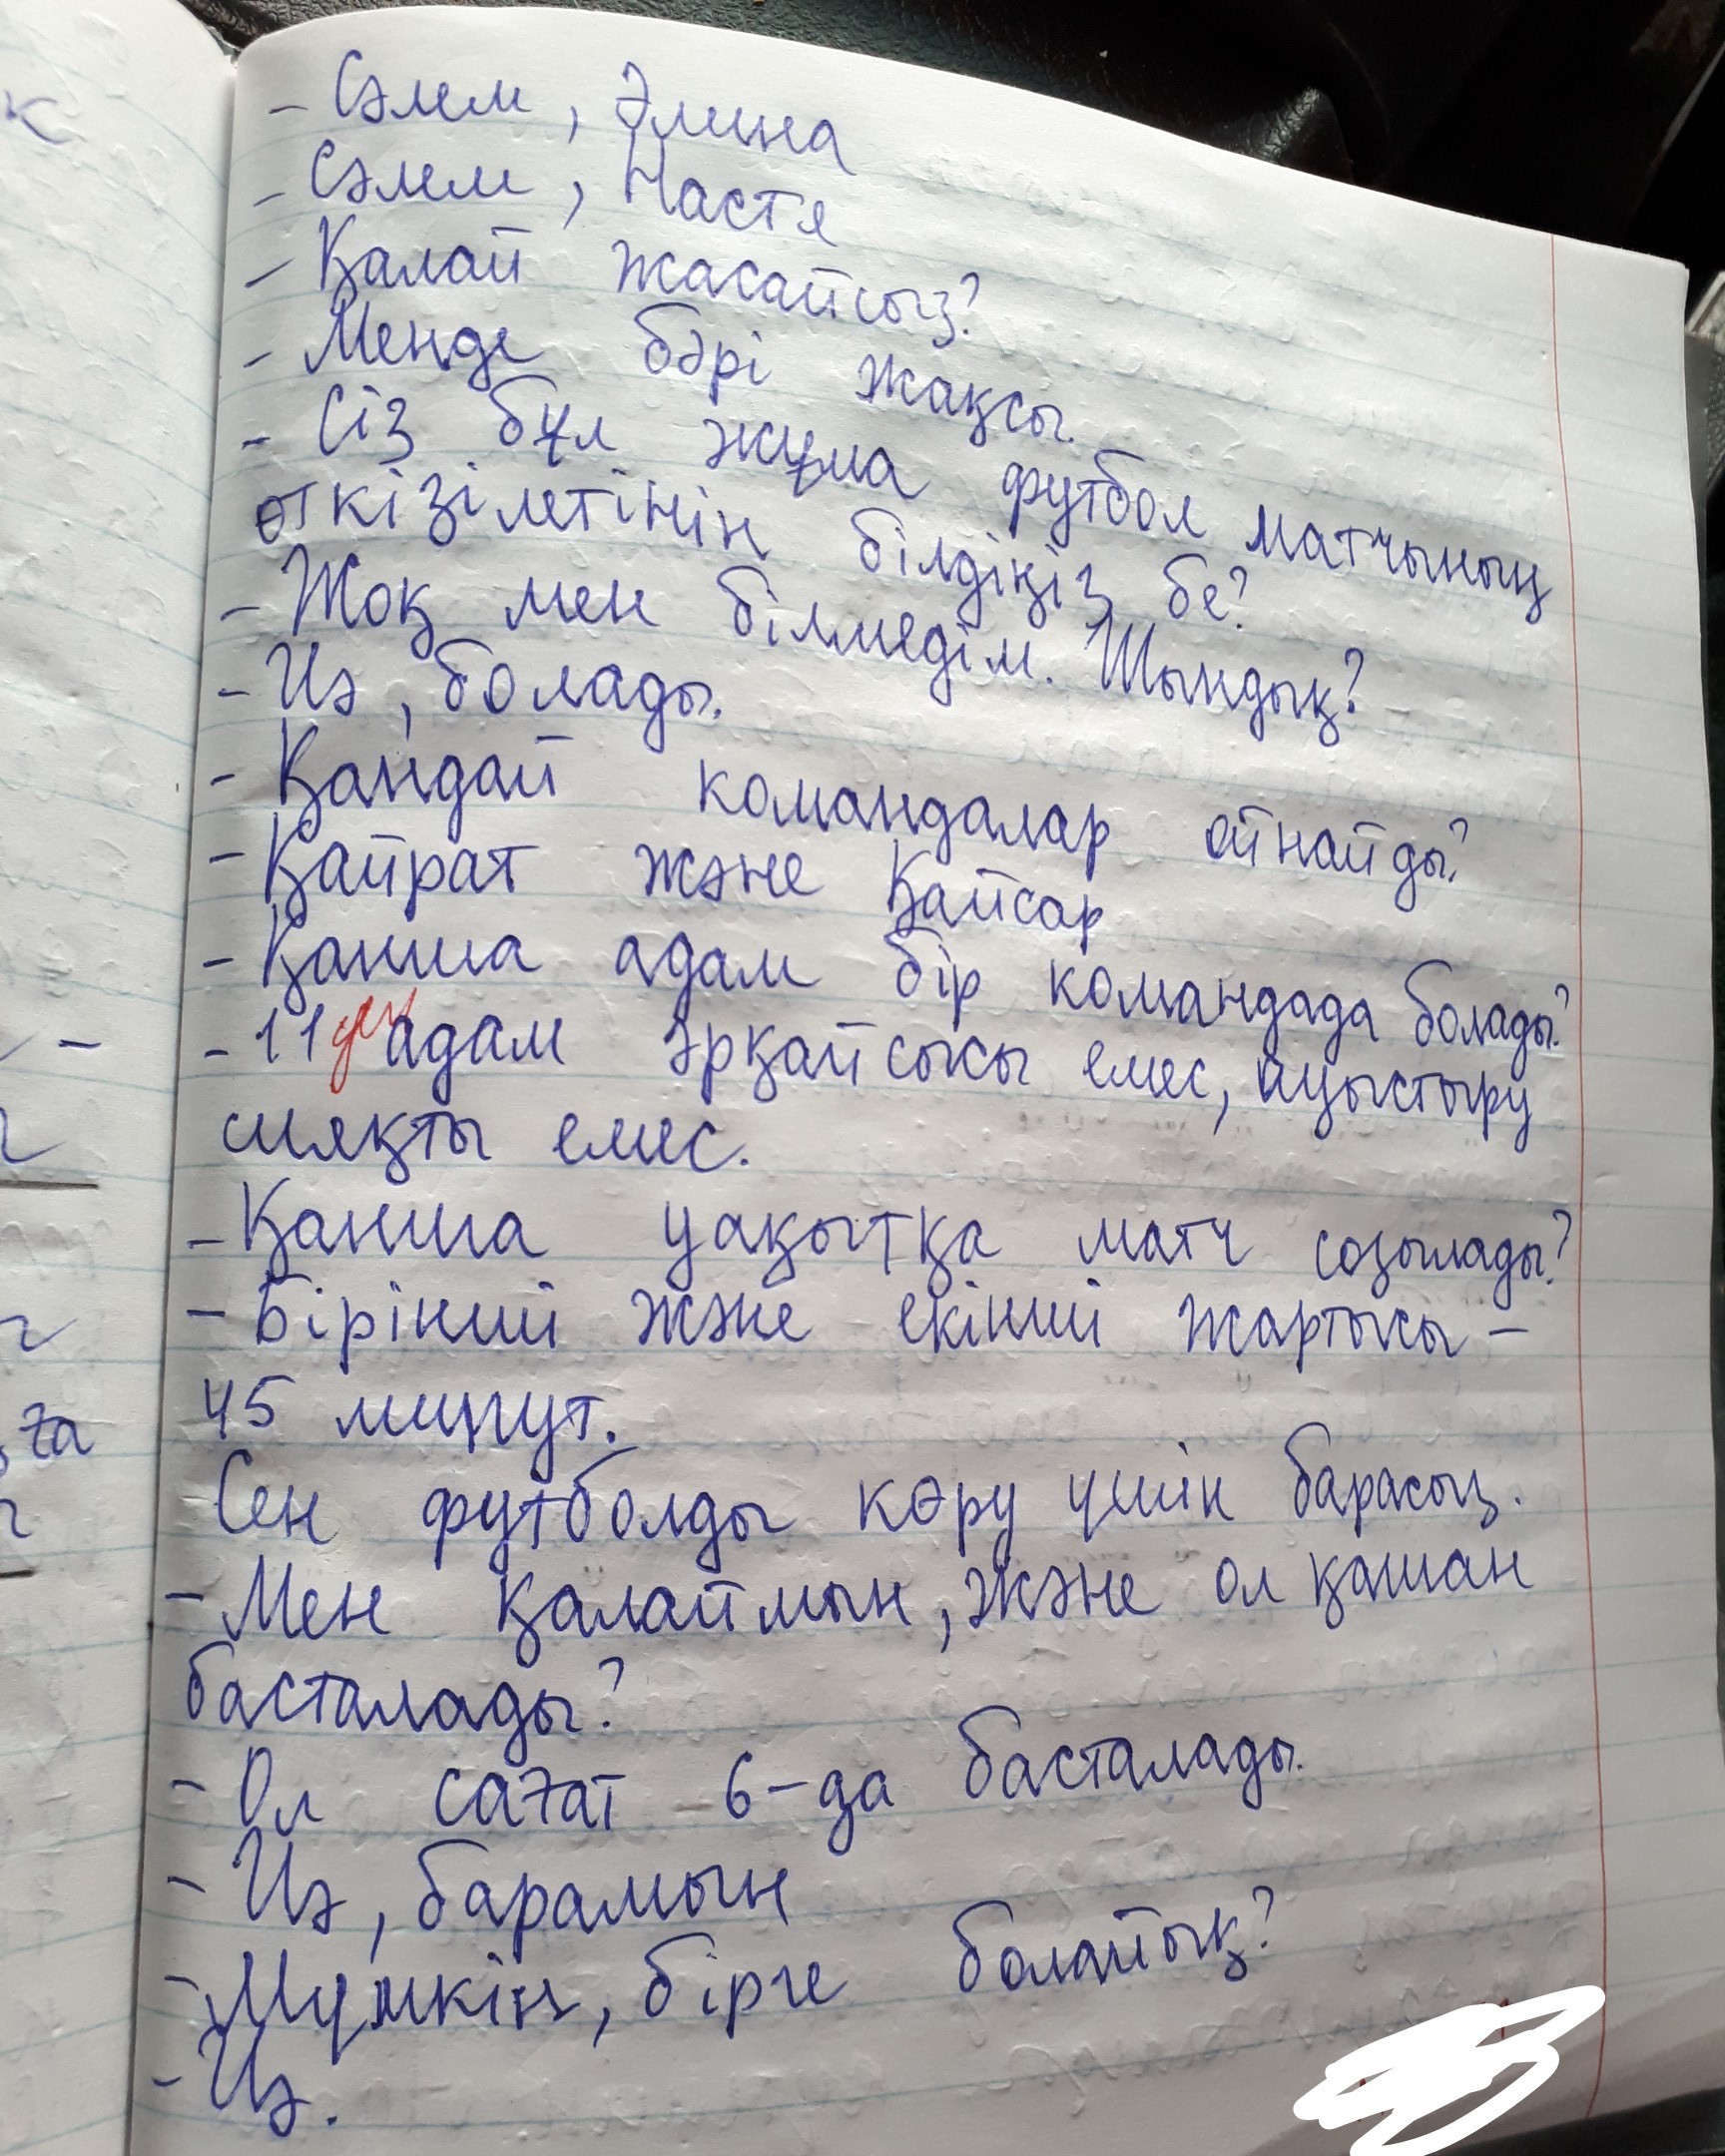 - Сәлем, Әлина
- Сәлем, Настя
- Қалай жасайсыз?
- Менде бәрі жақсы.
- Сіз бұл жұма футбол матчының
өткізілетінін білдіңіз бе?
- Жоқ мен білмедім. Шындық?
- Иә, болады.
- Қандай командалар ойнайды?
- Қайрат және Қайсар
- Қанша адам бір командада болады?
- 11 адам әрқайсысы емес, ауыстыру
сияқты емес.
- Қанша уақытқа матч созылады?
- Бірінший және екінший жартысы -
45 минут.
Сен футболды көру үшін барасың.
- Мен қалаймын, және ол қашан
басталады?
- Ол сағат 6-да басталады.
- Иә, барамын
- Мүмкін, бірге болайық?
- Иә.